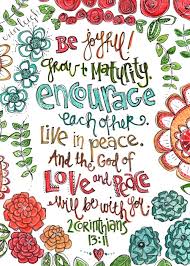 Be joyful!
grow to maturity.
encourage
each other.
Live in peace.
And the God of
Love and Peace
Will be with you
2 corinthians
13:11